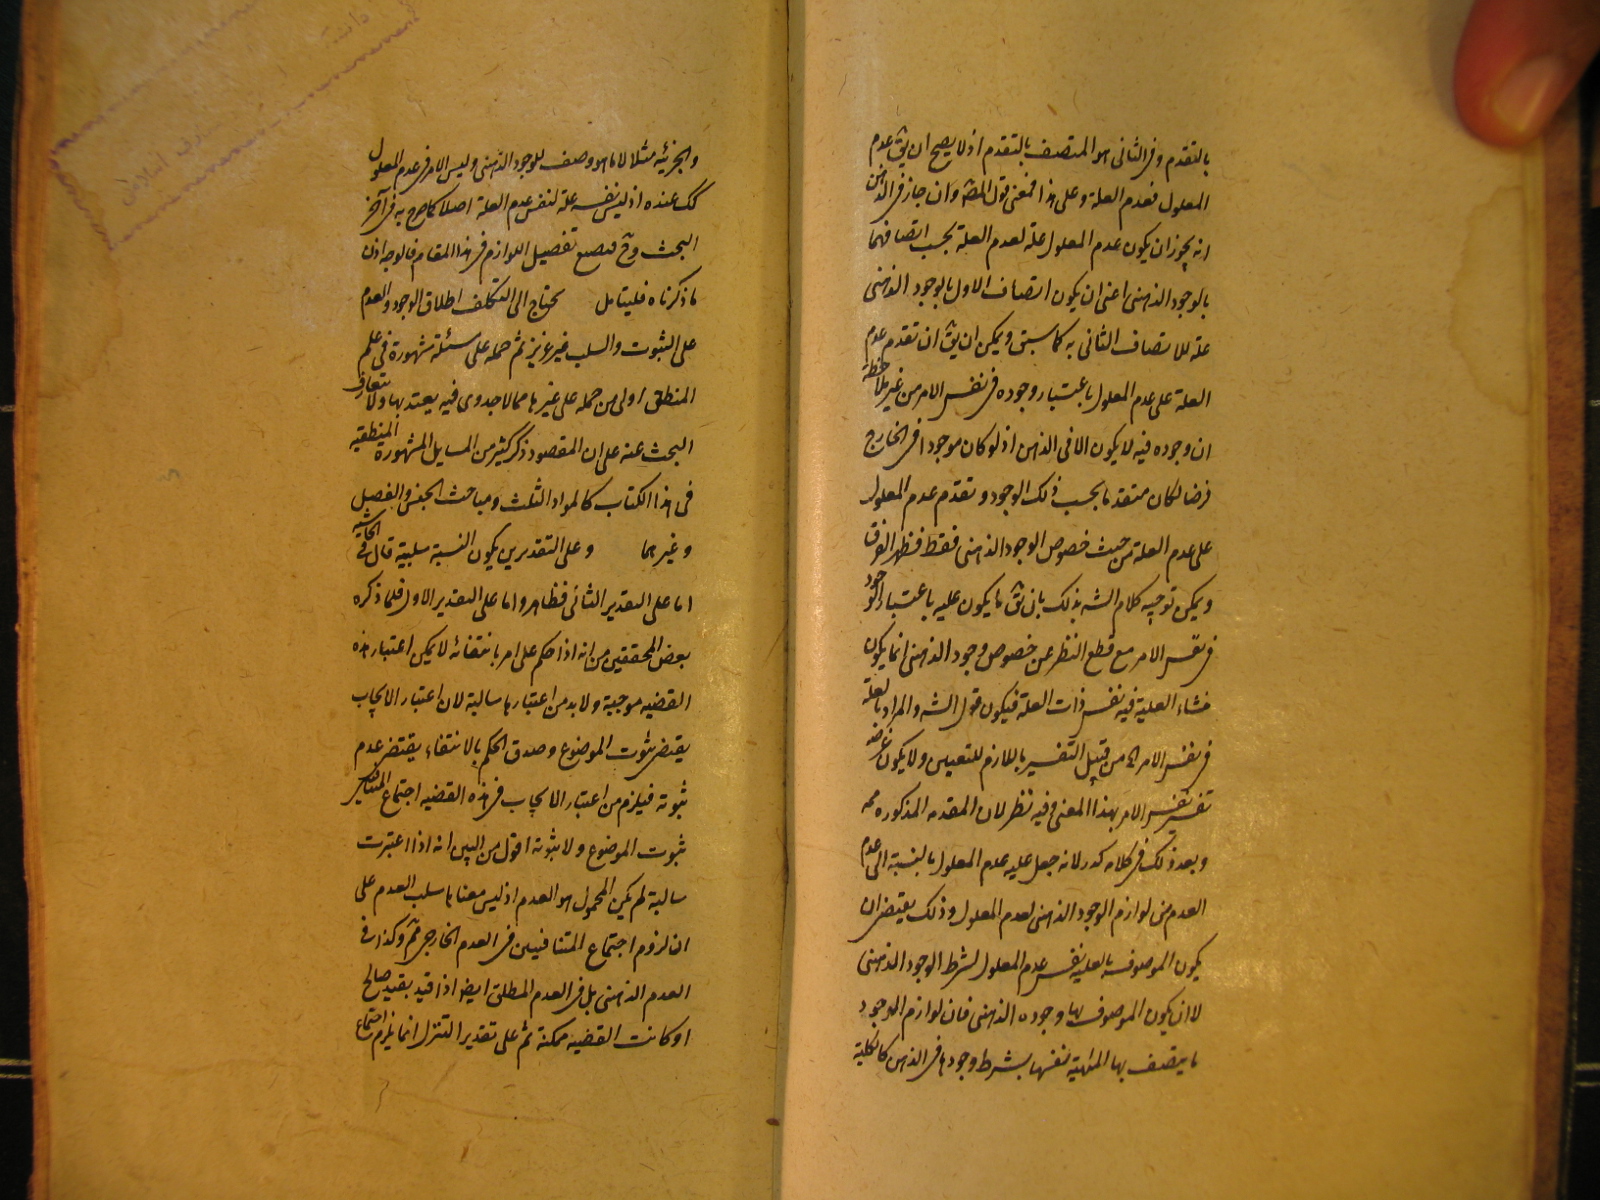 بالتقدم وفى الثانى هو المتصف بالتقدم اذ لا يصح ان يق عدم
المعلول فعدم العلة وعلى هذا فمعنى قول المصه وان جاز فى الذهن
انه يجوز ان يكون عدم المعلول علة لعدم العلة بحسب اتصافهما
بالوجود الذهنى اعنى ان يكون اتصاف الاول بالوجود الذهنى
علة للاتصاف الثانى به كما سبق ويمكن ان يق ان تقدم عدم
العلة على عدم المعلول باعتبار وجوده فى نفس الامر من غير ملاحظة
ان وجوده فيه لا يكون الا فى الذهن اذ لو كان موجودا فى الخارج
فرضا لكان متقدما بحسب ذلك الوجود وتقدم عدم المعلول
على عدم العلة من حيث خصوص الوجود الذهنى فقط فظهر الفرق
ويمكن توجيه كلام الشه بذلك بان يق ما يكون عليه باعتبار الوجود
فى نفس الامر مع قطع النظر عن خصوص وجود الذهنى انما يكون
منشاء العلية فيه نفس ذات العلة فيكون قول الشه والمراد بالعلة
فى نفس الامر اه من قبيل التفسير باللازم للتعيين ولا يكون غرضه
تفسير نفس الامر بهذا المعنى وفيه نظر لان المقدمه المذكوره
وبعد ذلك فى كلامه كدر لانه جعل علية عدم المعلول بالنسبة الى عدم
العدم من لوازم الوجود الذهنى لعدم المعلول وذلك يقتضى ان
يكون الموصوف بالعلية نفس عدم المعلول لشرط الوجود الذهنى
لا ان يكون الموصوف بها وجوده الذهنى فان لوازم الوجود
ما يتصف بها المهية نفسها بشرط وجودها فى الذهن كالكلية
والجزئيه مثلا لا ما هو وصف للوجود الذهنى وليس الامر فى عدم المعلول
كك عنده اذ ليس نفسه علة لنفس عدم العلة اصلا كما صرح به فى آخر
البحث وح فيضيع تفصيل اللوازم فى هذا المقام فالوجه اذن
ما ذكرناه فليتامل يحتاج الى التكلف اطلاق الوجود والعدم
على الثبوت والسلب غير عزيز ثم حمله على مسئلة مشهورة فى علم
المنطق اولى من حمله على غيرها مما لا جدوى فيه يعتد بها ولا يتعارف
البحث عنه على ان المقصود ذكر كثير من المسايل المشهورة المنطقيه
فى هذا الكتاب كالمواد الثلث ومباحث الجنس والفصل
وغيرهما وعلى التقديرين يكون النسبة سلبية قال فى الحاشيه
اما على التقدير الثانى فظاهر واما على التقدير الاول فلما ذكره
بعض المحققين من انه اذا حكم على امر بانتفائه لا يمكن اعتبار هذه
القضيه موجبة ولا بد من اعتبارها سالبة لان اعتبار الايجاب
يقتضى ثبوت الموضوع وصدق الحكم بالانتفاء يقتضى عدم
ثبوته فيلزم من اعتبار الايجاب فى هذه القضيه اجتماع المتنافيين
ثبوت الموضوع ولا ثبوته اقول من البين انه اذا اعتبرت
سالبة لم يكن المحمول هو العدم اذ ليس معناها سلب العدم على
ان لزوم اجتماع المتنافيين فى العدم الخارجى مم وكذا فى
العدم الذهنى بل فى العدم المطلق ايضا اذا قيد بقيد صالح
او كانت القضيه ممكنة ثم على تقدير التنزل انما يلزم اجتماع